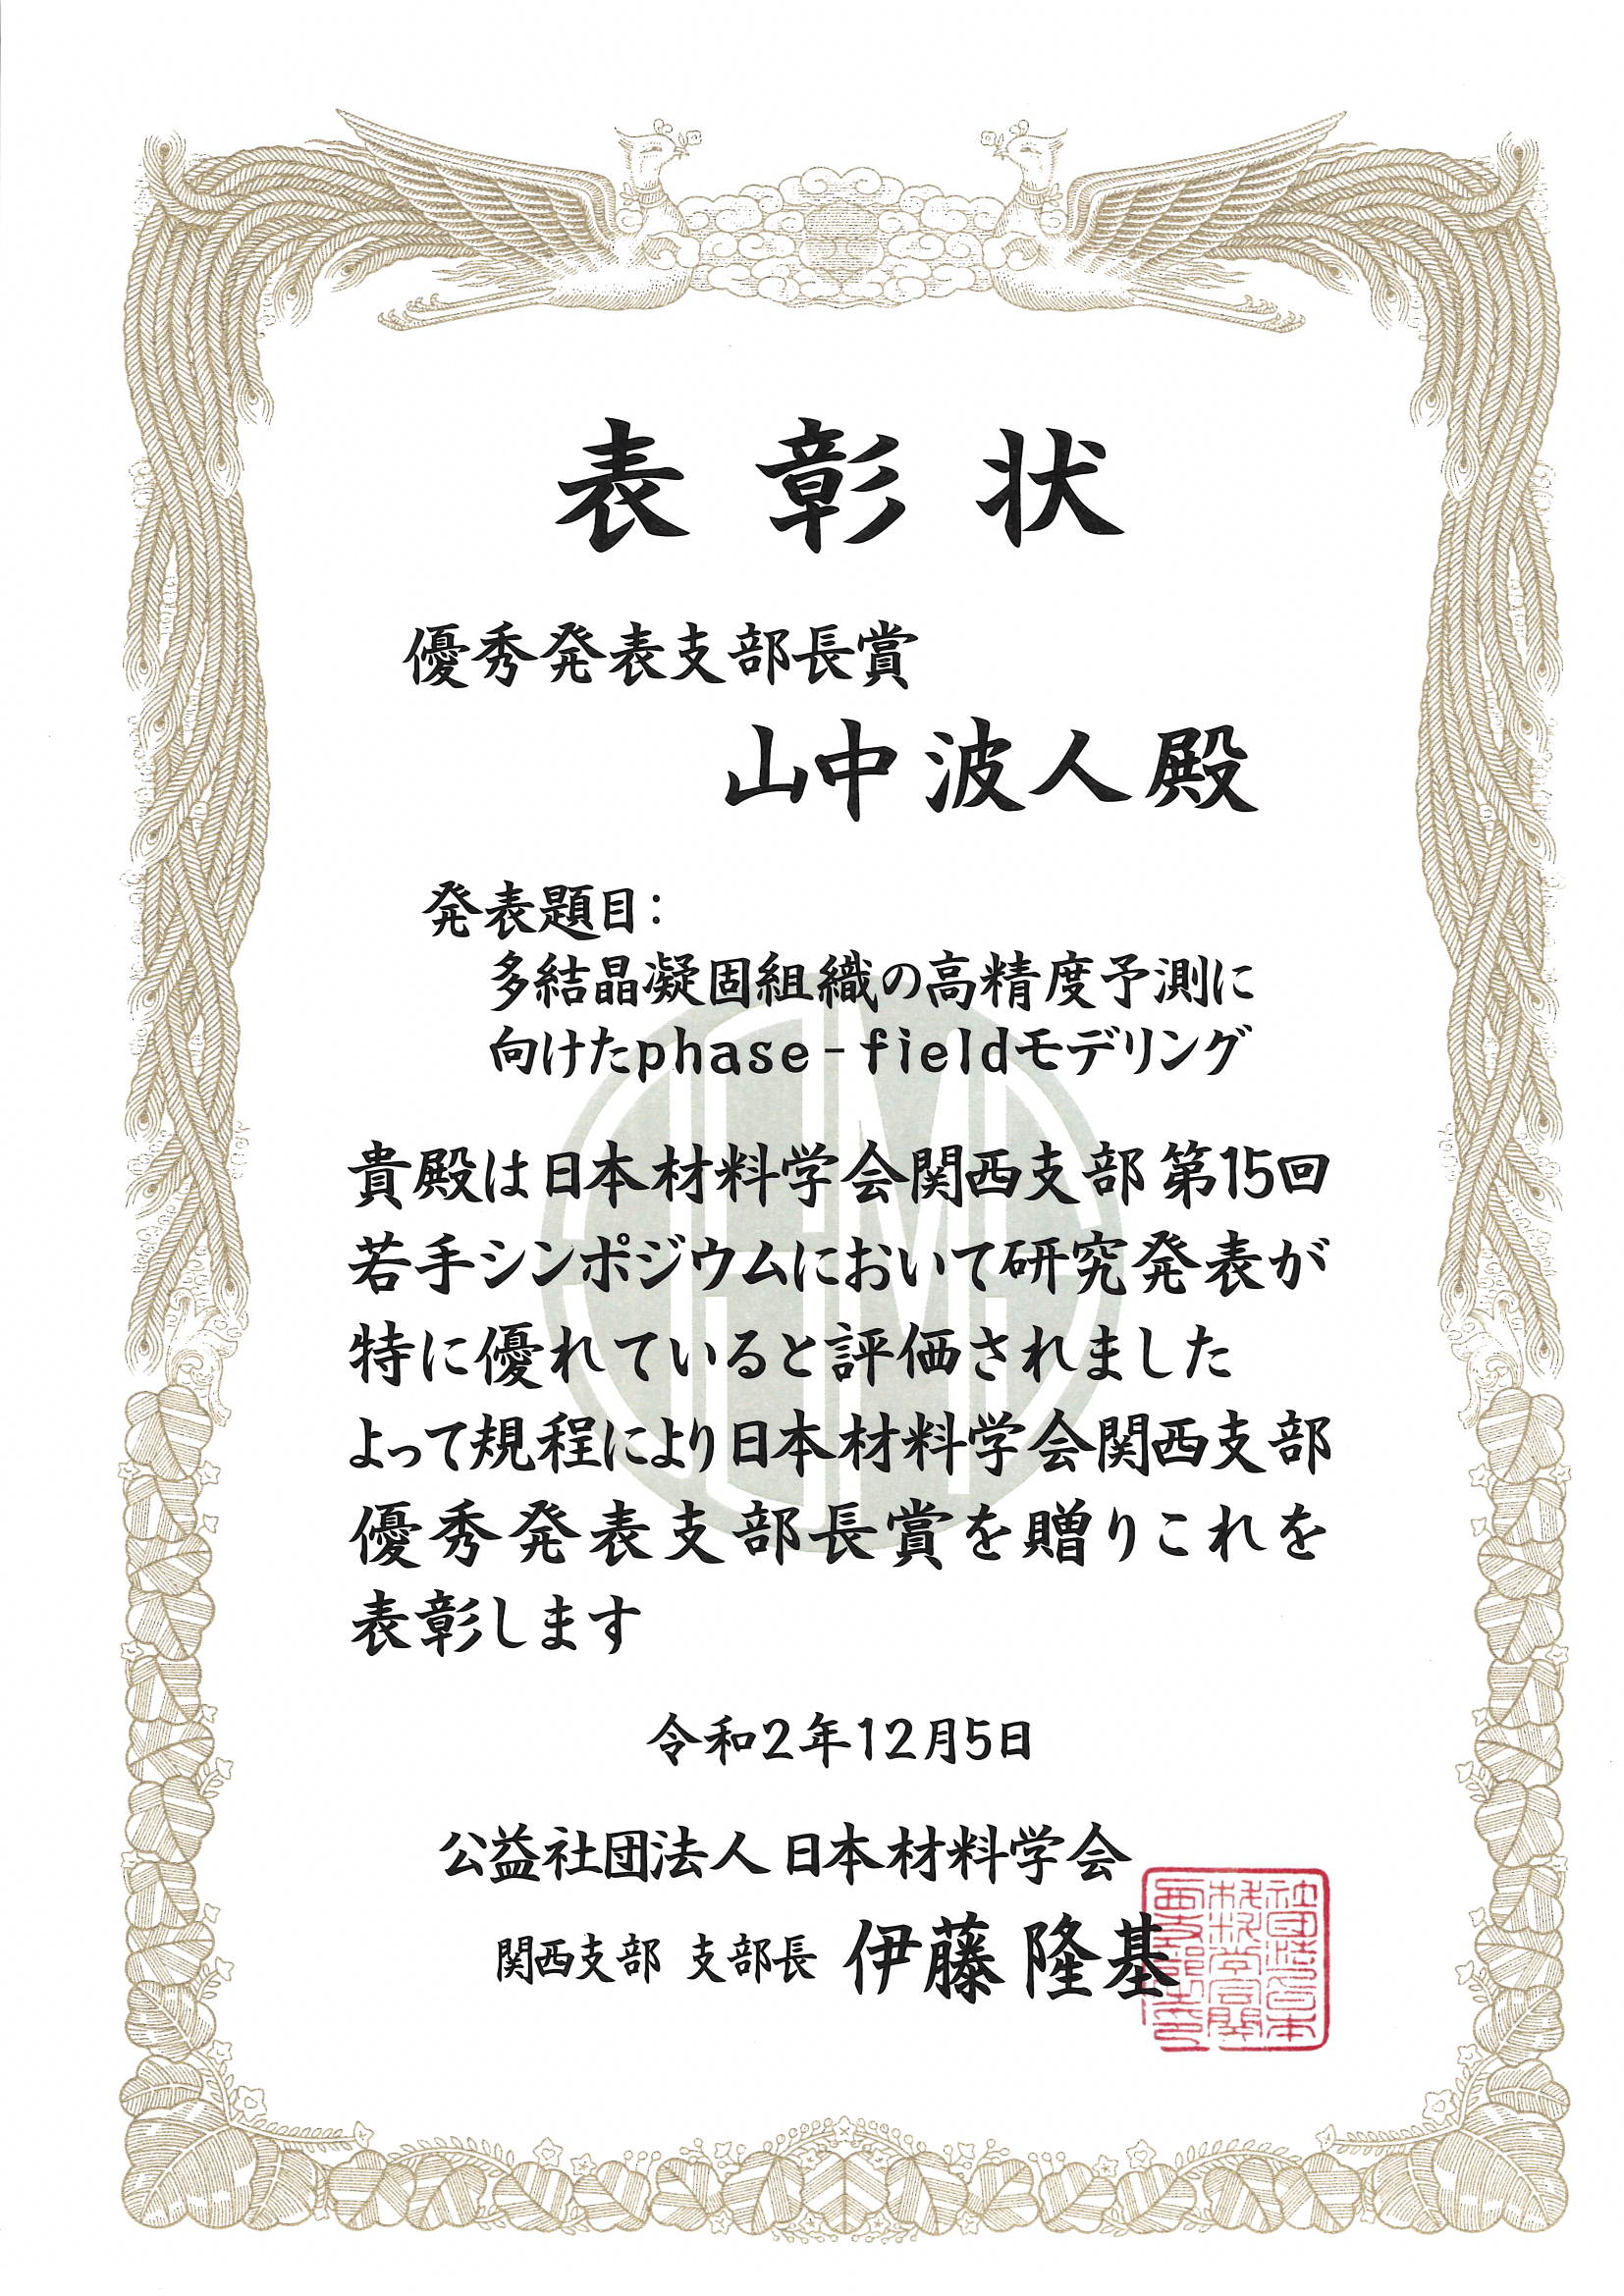 表彰状
優秀発表支部長賞
山中 波人 殿
発表題目:
多結晶凝固組織の高精度予測に
向けたphase-fieldモデリング
貴殿は日本材料学会関西支部 第15回
若手シンポジウムにおいて研究発表が
特に優れていると評価されました
よって規程により日本材料学会関西支部
優秀発表支部長賞を贈りこれを
表彰します
令和2年12月5日
公益社団法人 日本材料学会
関西支部 支部長 伊藤 隆基